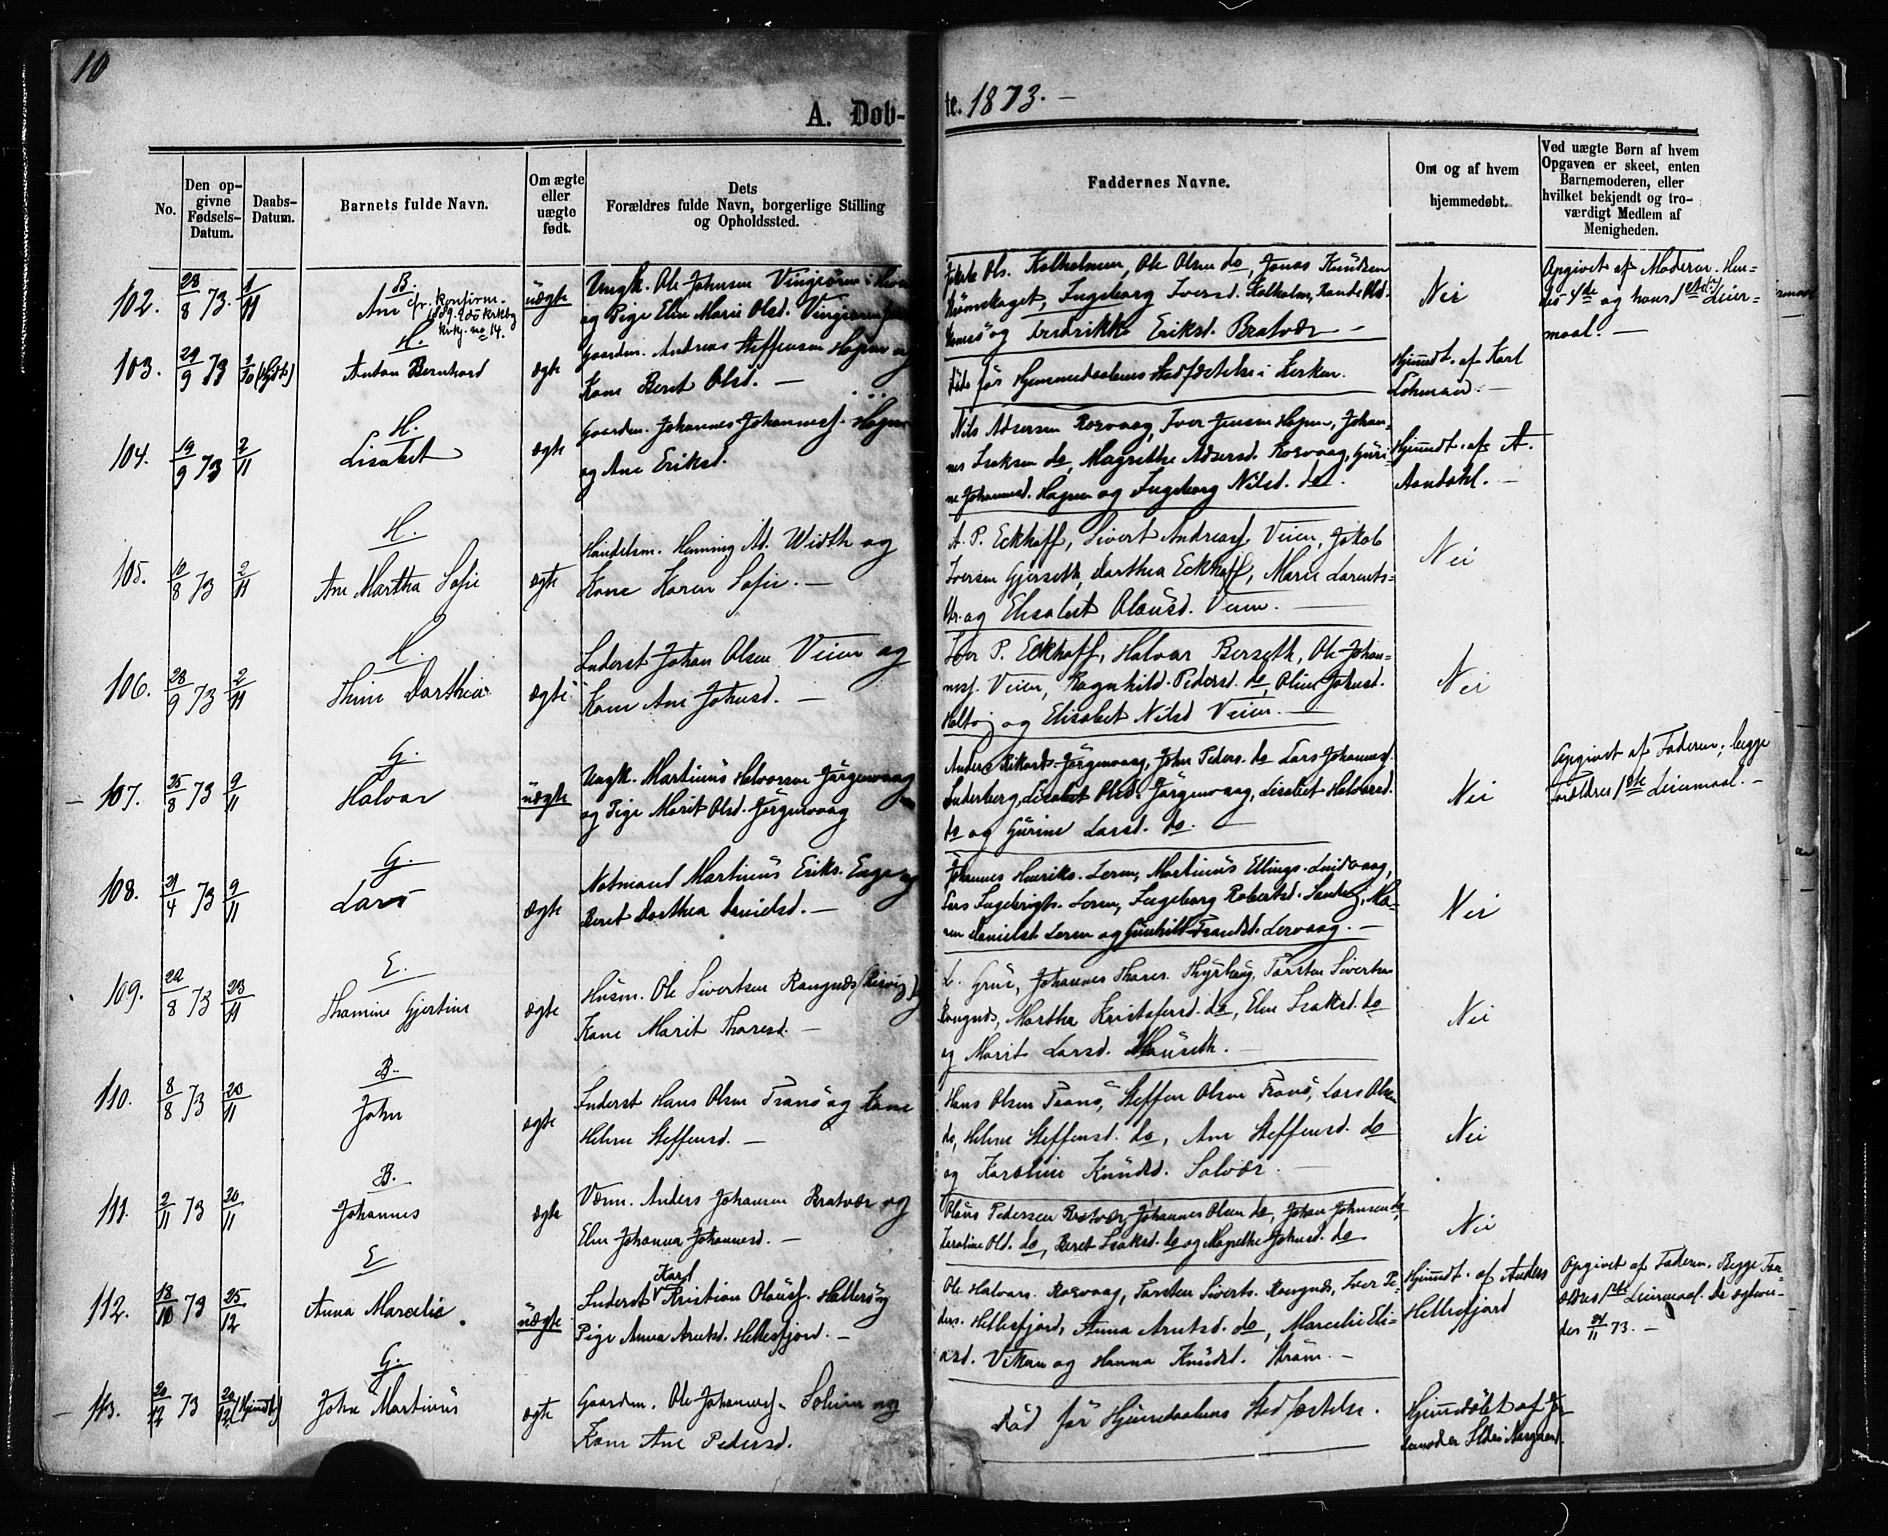 10
A. Døb-
te. 1873.
No.
Den op-
givne
Fødsels-
Datum.
Daabs-
Datum.
Barnets fulde Navn.
Om ægte
eller
uægte
født.
Dets
Forældres fulde Navn, borgerlige Stilling
og Opholdssted.
Faddernes Navne.
Om og af hvem
hjemmedøbt.
Ved uægte Børn af hvem
Opgaven er skeet, enten
Barnemoderen, eller
hvilket bekjendt og tro-
værdigt Medlem af
Menigheden.
102. 28/8 73. 1/11
B.
Ane cfr. konfirm.
1889
no 14.
uægte
Ungk. Ole Johnsen Vingsøren i
og Pige Elen Marie Olsd.
Kalholmen, Ole Olsen do, Jonas Knudsen
Ingeborg Iversd. Kalholm,
og Fredrikke Eriksd. Bratvær
Nei
Opgivet af Moderen. Hen-
des 4de og hans 1ste Leier-
maal.
103. 29/9 73 2/10 (Hjdt)
H.
Anton Bernhard
ægte
Gaardm. Andreas Steffensen Hopen og
Kone Beret Olsd.
Død før Hjemmedaabens Stadfæstelse i Kirken.
Hjemdt. af Karl
Lohman
104. 19/9 73 2/11
H.
Lisabet
ægte
Gaardm. Johannes Johannesf. Hopen
og Ane Eriksd.
Nils Adsersen Rosvaag, Iver Jensen Hopen, Johan-
nes Isaksen do, Magrethe Adsersd. Rosvaag, Guri-
ne Johannesd. Hopen og Ingeborg Nilsd. do
Hjemdt. af A.
Aandahl.
105. 10/8 73 2/11
H.
Ane Martha Sofie
ægte
Handelsm. Henning Ad. Width og
Kone Karen Sofie.
A. P. Eckhoff, Sivert Andreasf. Veien, Jakob
Iversen Gjerseth, Darthea Eckhoff, Marie Lorents-
dr. og Elisabet Olausd. Veien.
Nei
106. 28/9 73 2/11
H.
Thine Darthea
ægte
Inderst Johan Olsen Veien og
Kone Ane Johnsd.
Iver P. Eckhoff, Halvar Berseth, Ole Johan-
nesf. Veien, Ragnhild Pedersd. do, Oline Johnsd.
og Elisabet Nilsd Veien.
Nei
107. 25/8 73 9/11
G.
Halvar
uægte
Ungk. Martinus Halvorsen Jørgenvaag
og Pige Marit Olsd. Jørgenvaag
Anders Rikards. Jørgenvaag, John Peders. do Lars Johannesf.
Inderberg, Lisabet Olsd. Jørgenvaag, Lisabet Halvorsd.
do og Gurine Larsd. do.
Nei
Opgivet af Faderen; begge
Forældres 1ste Leiermaal.
108. 21/4 73 9/11
G.
Lars
ægte
Notmand Martinus Eriks. Enge og
Beret Darthea Danielsd.
Johannes Henriks. Leren, Martinus Ellings.
Lars Ingebrigts. Leren, Ingeborg Robertsd. Ma-
ren Danielsd. Leren og Lervaag.
Nei
109. 22/8 73 23/11
E.
Thamine Gjertine
ægte
Husm. Ole Sivertsen Rangnes
Kone Marit Tharesd.
L. Grue, Johannes Thares. Thyrhaug, Torsten Sivertsen
Rangnes, Martha Kristofersd. do, Elen Isaksd. do
og Marit Larsd. Mauseth.
Nei
110. 8/8 73 23/11
B.
John
ægte
Inderst Hans Olsen Tranø og Kone
Helene Steffensd.
Hans Olsen Tranø, Steffen Olsen Tranø, Lars Olsen
do, Helene Steffensd. do, Ane Steffensd. do
og Karoline Knudsd. Solvær.
Nei
111. 2/11 73 20/11
B.
Johannes
ægte
Værm. Anders Johansen Bratvær og
Elen Johanna Johannesd.
Olaus Pedersen Bratvær, Johannes Olsen do, Johan Johnsen do,
Karoline Old. do, Beret Isaksd. do og Magrethe Johnsd. do
Nei
112. 18/10 73 25/12
E
Anna Marcelie
uægte
Karl
Inderst Kristian Olausf.
Pige Anna Arntsd. Hellesfjord.
Ole Halvors. Rosvaag, Torsten Siverts. Rangnes, Iver Pe-
ders. Hellesfjord, Anna Arntsd. do, Marcelie Eli-
asd. Vikan og Hanna Knudsd. Strøm.
Hjemdt. af Anders
Hellesfjord
Opgivet af Faderen. Begge For-
ældres 1ste Leiermaal.
73.
113. 20/12 73 20/12 (Hjemdt)
G.
John Martinus
ægte
Gaardm. Ole Johannesf. Solem og
Kone Ane Pedersd.
Død før Hjemmedaabens Stadfæstelse.
Hjemmedøbt af Jor-
demoder